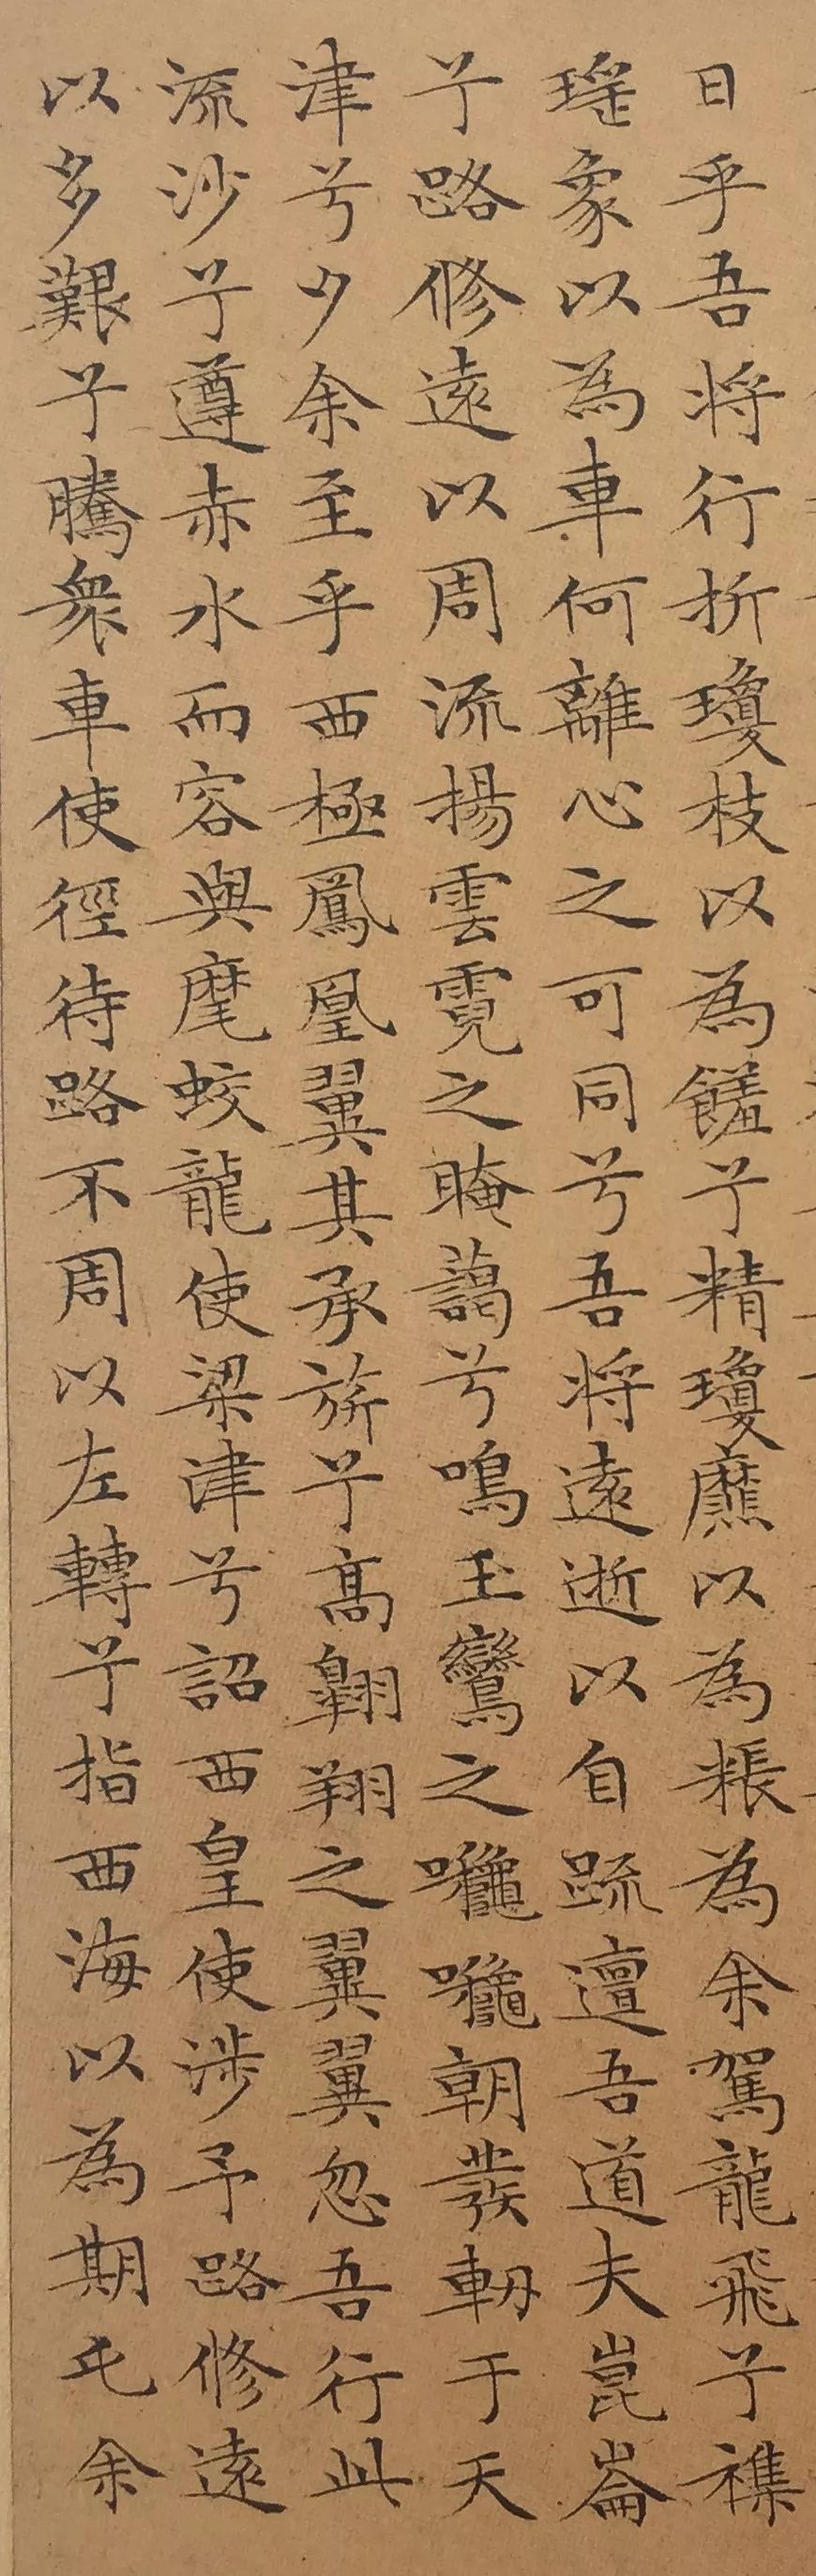 日乎吾将行折瓊枝以為饈兮精瓊爢以為粻為余駕龍飛兮襍
瑤象以為車何離心之可同兮吾将遠逝以自疏邅吾道夫崑崙
兮路修遠以周流揚雲霓之晻藹兮鳴玉鸞之啾啾朝發軔于天
津兮夕余至乎西極鳳凰翼其承旂兮高翺翔之翼翼忽吾行此
流沙兮遵赤水而容與麾蛟龍使梁津兮詔西皇使涉予路修遠
以多艱兮騰衆車使徑待路不周以左轉兮指西海以為期屯余